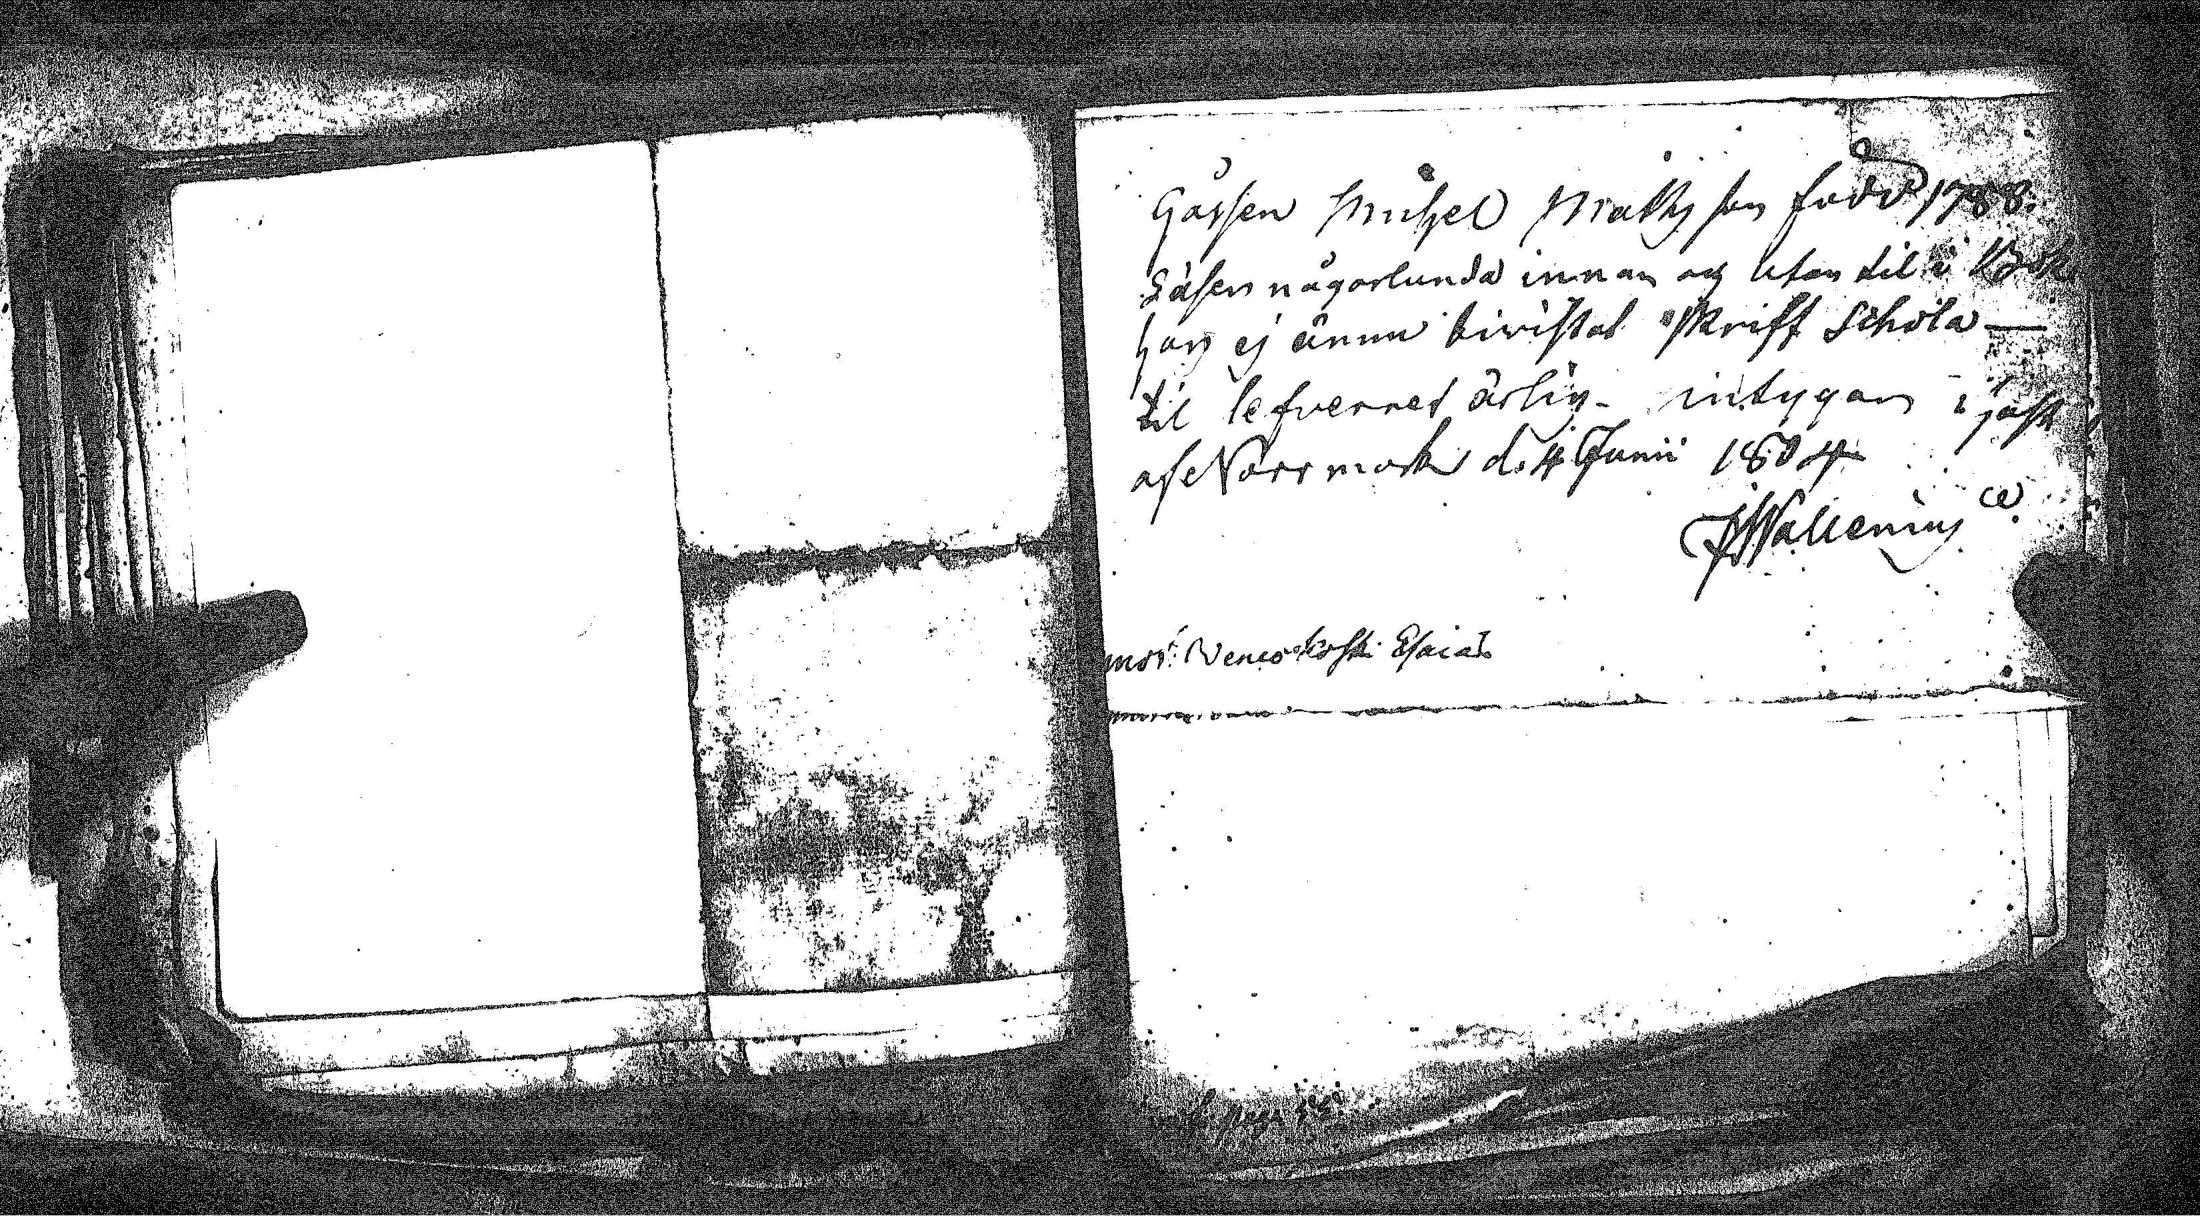 Gåssen Michel Mattsson född 1788.
Läser någorlunda innan och utan til i Bok
han ej ännu biwistat Skrift Schola —
til lefvernet ärlig - intygar i hast
af Norrmark d. 4 Junii 1804
J Wallenius
Esaias